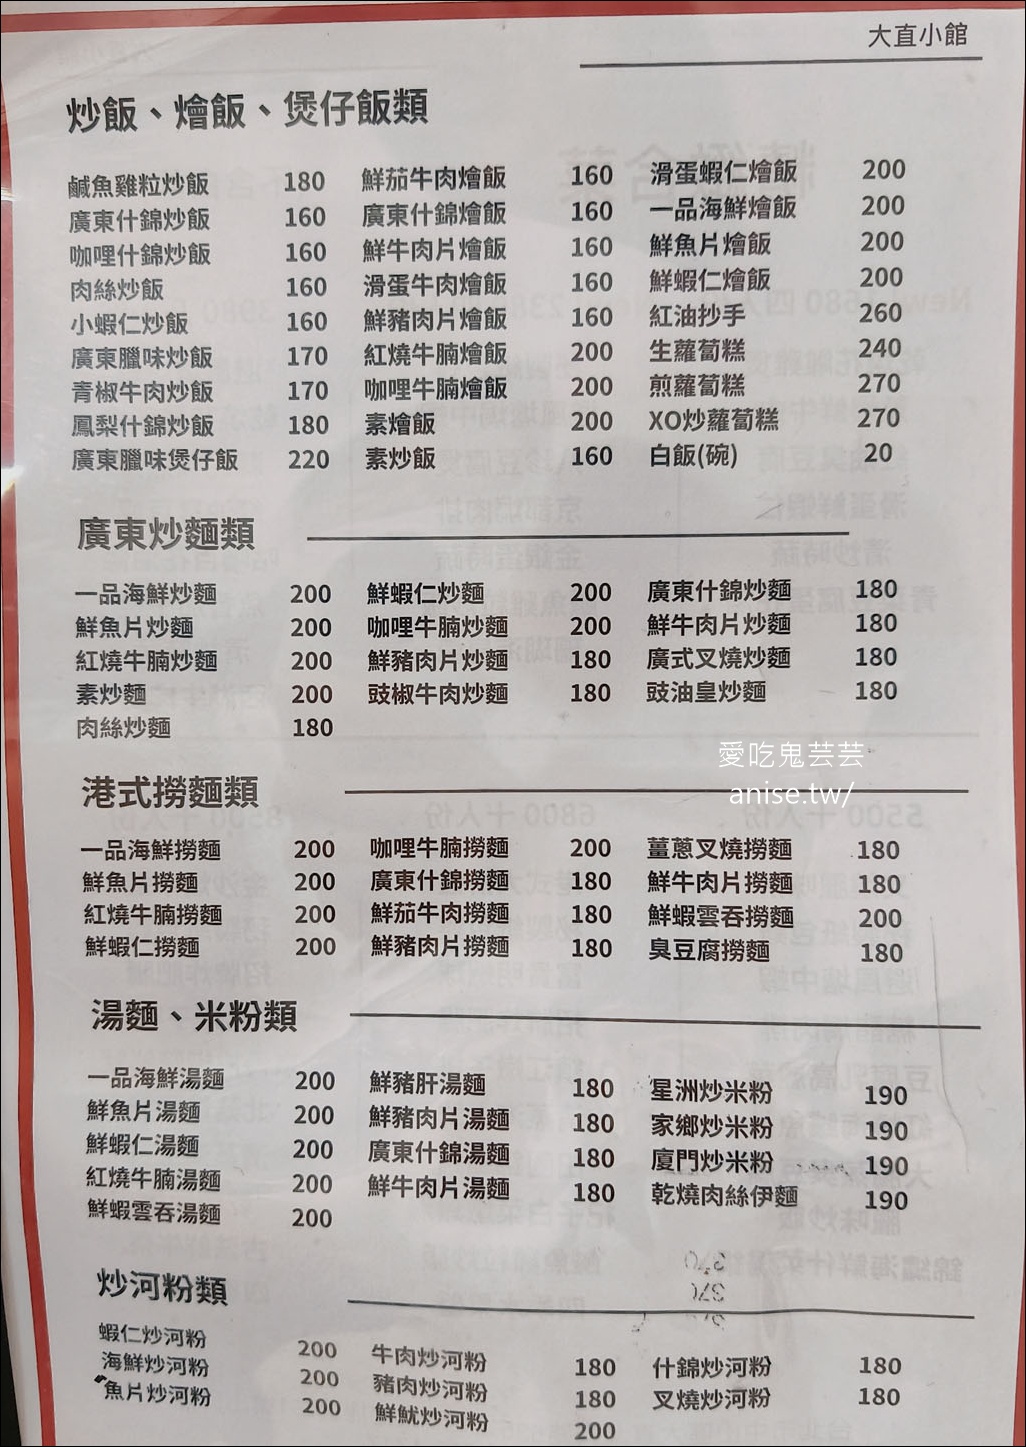 大直小館
炒飯、燴飯、煲仔飯類
鹹魚雞粒炒飯 180 鮮茄牛肉燴飯 160 滑蛋蝦仁燴飯 200
廣東什錦炒飯 160 廣東什錦燴飯 160 一品海鮮燴飯 200
咖哩什錦炒飯 160 鮮牛肉片燴飯 160 鮮魚片燴飯 200
肉絲炒飯 160 滑蛋牛肉燴飯 160 鮮蝦仁燴飯 200
小蝦仁炒飯 160 鮮豬肉片燴飯 160 紅油抄手 260
廣東臘味炒飯 170 紅燒牛腩燴飯 200 生蘿蔔糕 240
青椒牛肉炒飯 170 咖哩牛腩燴飯 200 煎蘿蔔糕 270
鳳梨什錦炒飯 180 素燴飯 200 XO炒蘿蔔糕 270
廣東臘味煲仔飯 220 素炒飯 160 白飯(碗) 20
廣東炒麵類
一品海鮮炒麵 200 鮮蝦仁炒麵 200 廣東什錦炒麵 180
鮮魚片炒麵 200 咖哩牛腩炒麵 200 鮮牛肉片炒麵 180
紅燒牛腩炒麵 200 鮮豬肉片炒麵 180 廣式叉燒炒麵 180
素炒麵 200 豉椒牛肉炒麵 180 豉油皇炒麵 180
肉絲炒麵 180
愛吃鬼芸芸
anise.tw/
港式撈麵類
一品海鮮撈麵 200 咖哩牛腩撈麵 200 薑蔥叉燒撈麵 180
鮮魚片撈麵 200 廣東什錦撈麵 180 鮮牛肉片撈麵 180
紅燒牛腩撈麵 200 鮮茄牛肉撈麵 180 鮮蝦雲吞撈麵 200
鮮蝦仁撈麵 200 鮮豬肉片撈麵 180 臭豆腐撈麵 180
湯麵、米粉類
一品海鮮湯麵 200 鮮豬肝湯麵 180 星洲炒米粉 190
鮮魚片湯麵 200 鮮豬肉片湯麵 180 家鄉炒米粉 190
鮮蝦仁湯麵 200 廣東什錦湯麵 180 廈門炒米粉 190
紅燒牛腩湯麵 200 鮮牛肉片湯麵 180 乾燒肉絲伊麵 190
鮮蝦雲吞湯麵 200
炒河粉類
蝦仁炒河粉 200 牛肉炒河粉 180 什錦炒河粉 180
海鮮炒河粉 200 豬肉炒河粉 180 叉燒炒河粉 180
魚片炒河粉 200 鮮魷炒河粉 200